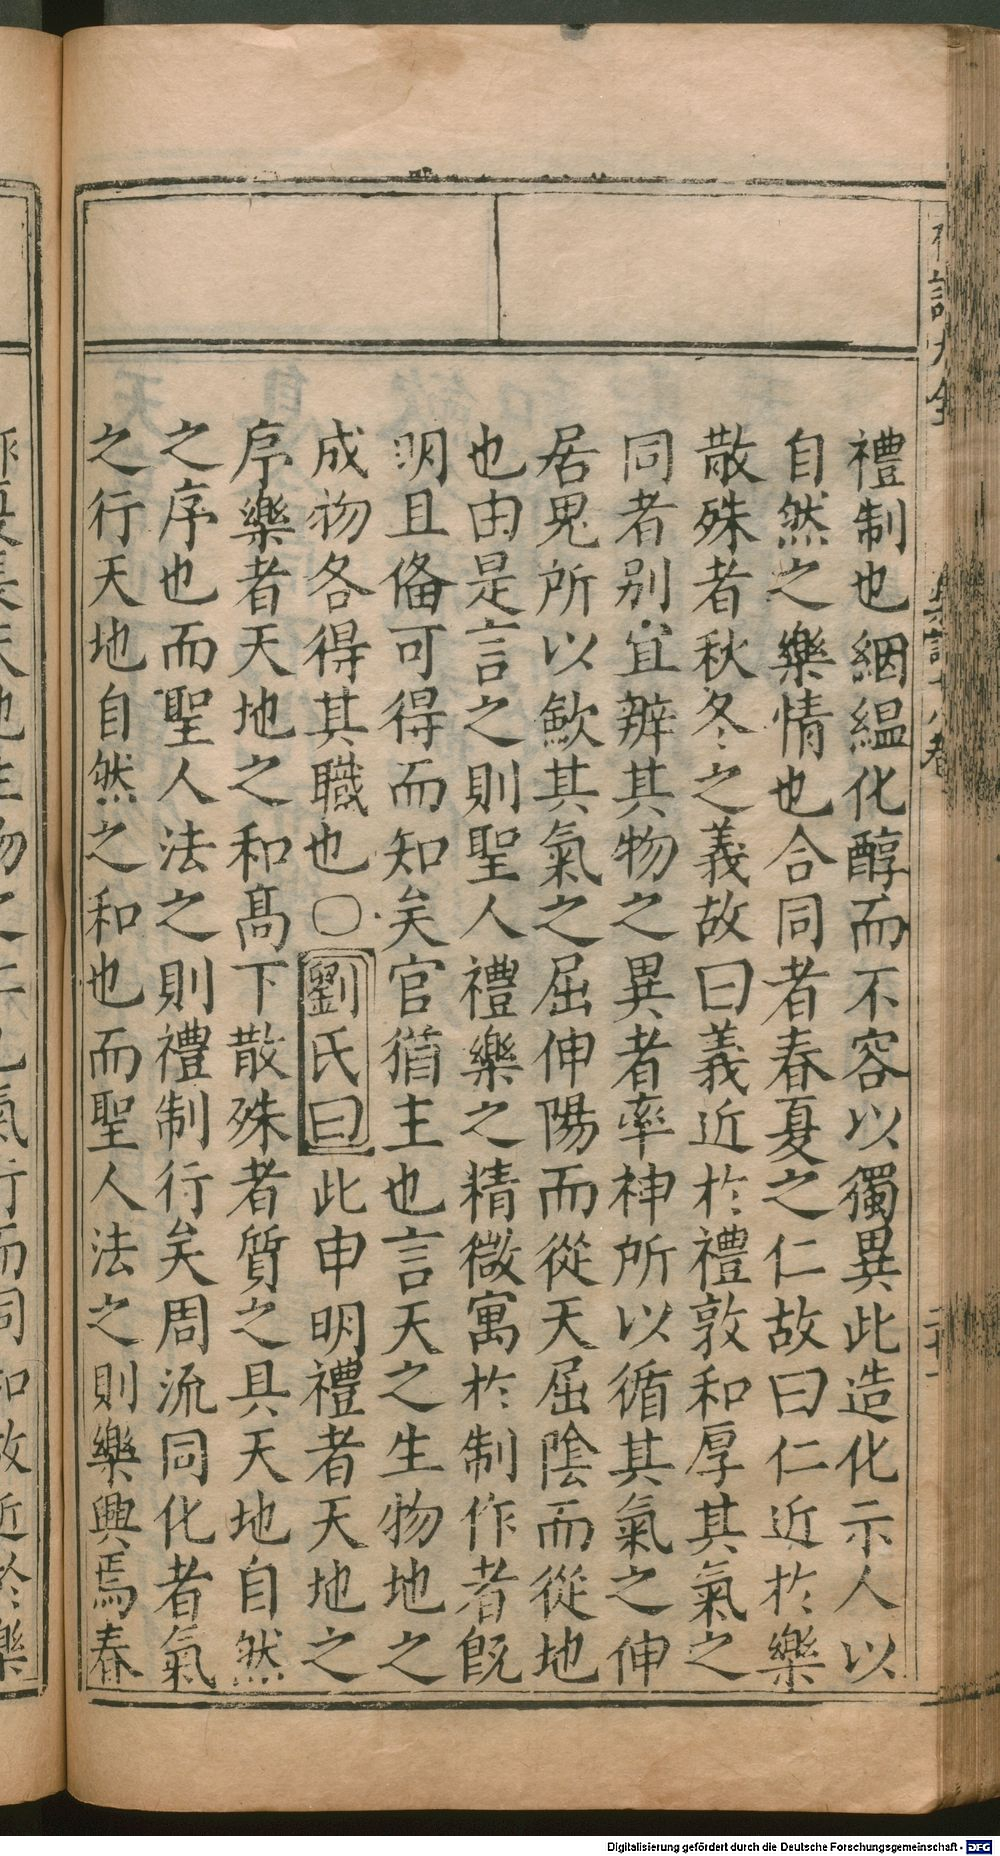 禮制也絪縕化醇而不容以獨異此造化示人以
自然之樂情也合同者春夏之仁故曰仁近於樂
散殊者秋冬之義故曰義近於禮敦和厚其氣之
同者别宜辨其物之異者率神所以循其氣之伸
居鬼所以歛其氣之屈伸陽而從天屈陰而從地
也由是言之則聖人禮樂之精微寓於制作者既
明且俻可得而知矣官猶主也言天之生物地之
成物各得其職也○劉氏曰此申明禮者天地之
序樂者天地之和髙下散殊者質之具天地自然
之序也而聖人法之則禮制行矣周流同化者氣
之行天地自然之和也而聖人法之則樂興焉春
Digitalisierung gefördert durch die Deutsche Forschungsgemeinschaft - DFG